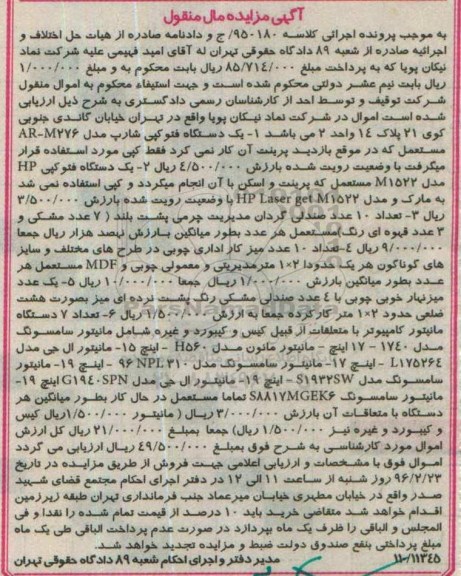 آگهی مزایده مال منقول
به موجب پرونده اجرائی کلاسه ۹۵۰۱۸۰/ ج و دادنامه صادره از هیات حل اختلاف و
اجرائیه صادره از شعبه ۸۹ دادگاه حقوقی تهران له آقای امید فهیمی علیه شرکت نماد
نیکان پویا که به پرداخت مبلغ ۸۵/۷۱۴/۰۰۰ ریال بابت محکوم به و مبلغ ۱/۰۰۰/۰۰۰
ریال بابت نیم عشر دولتی محکوم شده است و جهت استیفاء محکوم به اموال منقول
شرکت توقیف و توسط احد از کارشناسان رسمی دادگستری به شرح ذیل ارزیابی
شده است اموال در شرکت نماد نیکان پویا واقع در تهران خیابان گاندی جنوبی
کوی ۲۱ پلاک ۱۴ واحد ۲ می باشد ۱- یک دستگاه فتوکپی شارپ مدل AR-M۲۷۶
مستعمل که در موقع بازدید پرینت آن کار نمی کرد فقط کپی مورد استفاده قرار
میگرفت با وضعیت رویت شده بارزش ۴/۵۰۰/۰۰۰ ریال ۲- یک دستگاه فتوکپی HP
مدل M۱۵۲۲ مستعمل که پرینت و اسکن با آن انجام میگردد و کپی استفاده نمی شد
به مارک و مدل HP Laser get M۱۵۲۲ با وضعیت رویت شده بارزش ۳/۵۰۰/۰۰۰
ریال ۳- تعداد ۱۰ عدد صندلی گردان مدیریت چرمی پشت بلند ( ۷ عدد مشکی و
۳ عدد قهوه ای رنگ)مستعمل هر عدد بطور میانگین بارزش نهصد هزار ریال جمعا
۹/۰۰۰/۰۰۰ ریال ۴-تعداد ۱۰ عدد میز کار اداری چوبی در طرح های مختلف و سایز
های گوناگون هر یک حدودا ۲×۱ مترمدیریتی و معمولی چوبی و MDF مستعمل هر
عدد بطور میانگین بارزش ۱/۰۰۰/۰۰۰ ریال جمعا ۱۰/۰۰۰/۰۰۰ ریال ۵- یک عدد
میزنهار خوبی چوبی با ۴ عدد صندلی مشکی رنگ پشت نرده ای میز بصورت هشت
ضلعی حدود ۲×۱ متر کارکرده جمعا به ارزش ۱/۵۰۰/۰۰۰ ریال ۶- تعداد ۷ دستگاه
مانیتور کامپیوتر با متعلقات از قبیل کیس و کیبورد و غیره شامل مانیتور سامسونگ
مدل ۱۷۴۰ - ۱۷ اینچ - مانیتور مانون مدل H۵۶۰ - اینچ ۱۵- مانیتور ال جی مدل
L۱۷۵۲۶۴ - اینچ ۱۷- مانیتور سامسونگ مدل ۹۶ NPL۳۱۰ - اینچ ۱۹- مانیتور
سامسونگ مدل S۱۹۳۲SW - اینچ ۱۹- مانیتور ال جی مدل G۱۹۴۰SPN اینچ ۱۹-
مانیتور سامسونگ S۸۸۱۷MGEK۶ تماما مستعمل در حال کار بطور میانگین هر
دستگاه با متعاقات آن بارزش ۳/۰۰۰/۰۰۰ ریال ( مانیتور ۱/۵۰۰/۰۰۰ ریال کیس
و کیبورد و غیره نیز ۱/۵۰۰/۰۰۰ ریال) جمعا بمبلغ ۲۱/۰۰۰/۰۰۰ ریال کل ارزش
اموال مورد کارشناسی به شرح فوق بمبلغ ۴۹/۵۰۰/۰۰۰ ریال ارزیابی می گردد
اموال فوق با مشخصات و ارزیابی اعلامی جهت فروش از طریق مزایده در تاریخ
۹۶/۲/۲۳ روز شنبه از ساعت ۱۱ الی ۱۲ در دفتر اجرای احکام مجتمع قضای شهید
صدر واقع در خیابان مطهری خیابان میرعماد جنب فرمانداری تهران طبقه زیرزمین
اقدام خواهد شد متقاضی خرید باید ۱۰ درصد از قیمت تمام شده را نقدا و فی
المجلس و الباقی را ظرف یک ماه بپردازد در صورت عدم پرداخت الباقی طی یک ماه
مبلغ پرداختی بنفع صندوق دولت ضبط و مزایده تجدید خواهد شد.
۱۱۰/۱۱۳۴۵ مدیر دفتر و اجرای احکام شعبه ۸۹ دادگاه حقوقی تهران